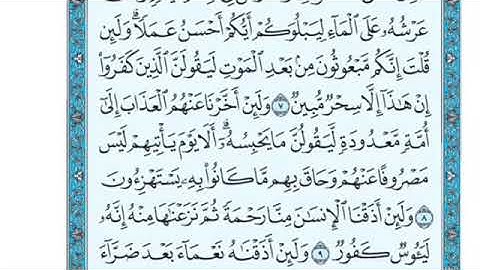 عَرْشُهُۥ عَلَى ٱلْمَآءِ لِيَبْلُوَكُمْ أَيُّكُمْ أَحْسَنُ عَمَلًا ۗ وَلَئِن
قُلْتَ إِنَّكُم مَّبْعُوثُونَ مِنۢ بَعْدِ ٱلْمَوْتِ لَيَقُولَنَّ ٱلَّذِينَ كَفَرُوٓا۟
إِنْ هَٰذَآ إِلَّا سِحْرٌ مُّبِينٌ ٧ وَلَئِنْ أَخَّرْنَا عَنْهُمُ ٱلْعَذَابَ إِلَىٰٓ
أُمَّةٍ مَّعْدُودَةٍ لَّيَقُولُنَّ مَا يَحْبِسُهُۥٓ ۗ أَلَا يَوْمَ يَأْتِيهِمْ لَيْسَ
مَصْرُوفًا عَنْهُمْ وَحَاقَ بِهِم مَّا كَانُوا۟ بِهِۦ يَسْتَهْزِءُونَ
٨ وَلَئِنْ أَذَقْنَا ٱلْإِنسَٰنَ مِنَّا رَحْمَةً ثُمَّ نَزَعْنَٰهَا مِنْهُ إِنَّهُۥ
لَيَـُٔوسٌ كَفُورٌ ٩ وَلَئِنْ أَذَقْنَٰهُ نَعْمَآءَ بَعْدَ ضَرَّآءَ